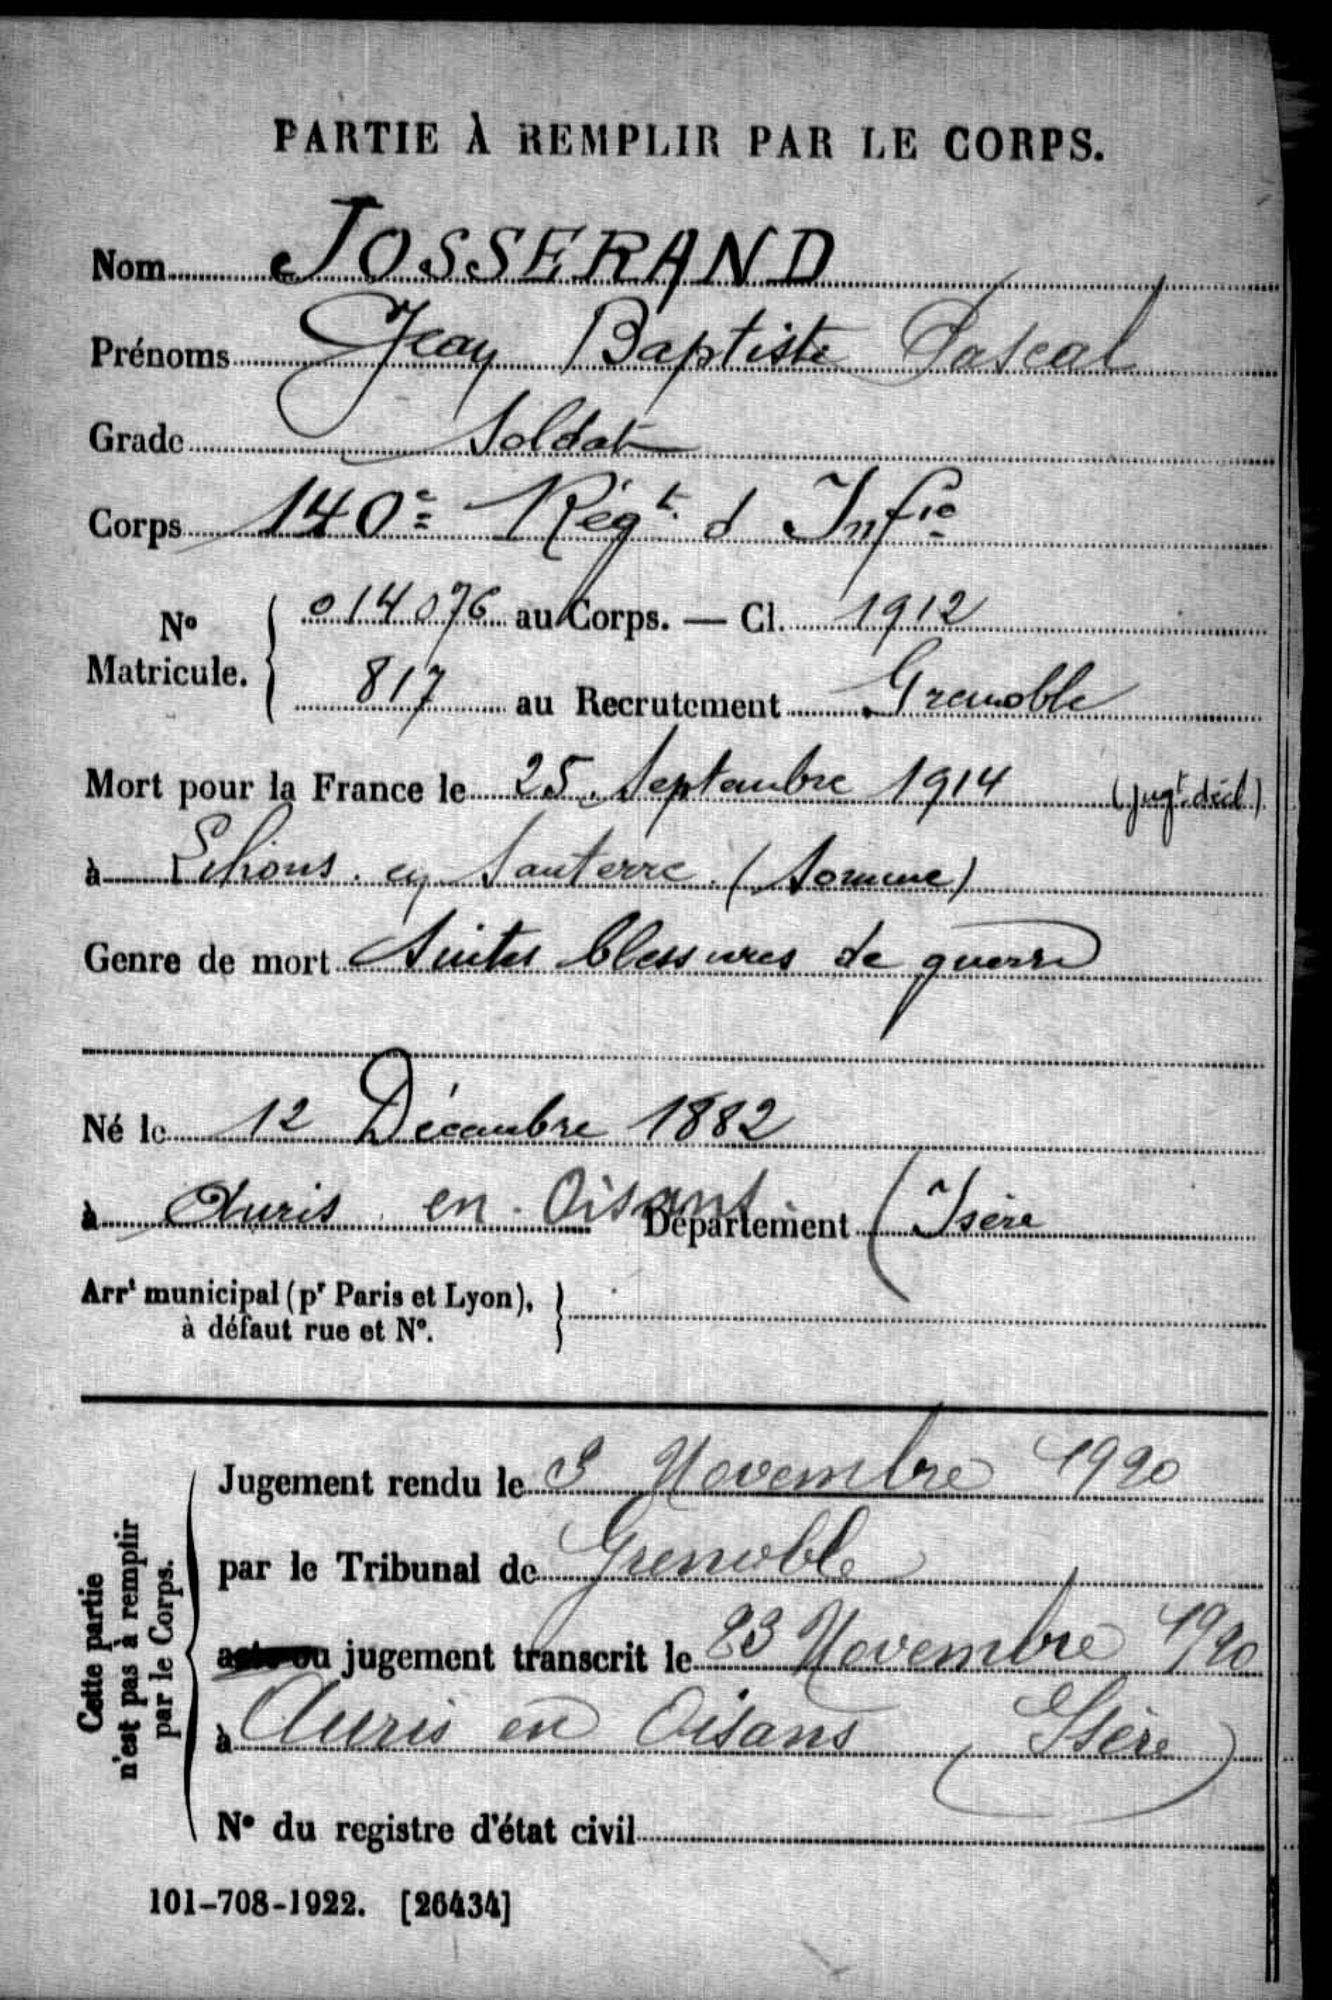 PARTIE À REMPLIR PAR LE CORPS.
Nom JOSSERAND
Prénoms Jean Baptiste Pascal
Grade Soldat
Corps 140e Régt. d Infie
No Matricule. { 014076 au Corps. — Cl. 1912
817 au Recrutement Grenoble
Mort pour la France le 25 Septembre 1914 (jugt. décl)
à Lihons en Santerre (Somme)
Genre de mort Suites blessures de guerre
Né le 12 Décembre 1882
à Auris en Oisans Département (Isère
Arrt municipal (pr Paris et Lyon), à défaut rue et No. }
Cette partie n'est pas à remplir par le Corps.
Jugement rendu le 3 Novembre 1920
par le Tribunal de Grenoble
acte ou jugement transcrit le 23 Novembre 1920
à Auris en Oisans (Isère)
No du registre d'état civil
101-708-1922. [26434]